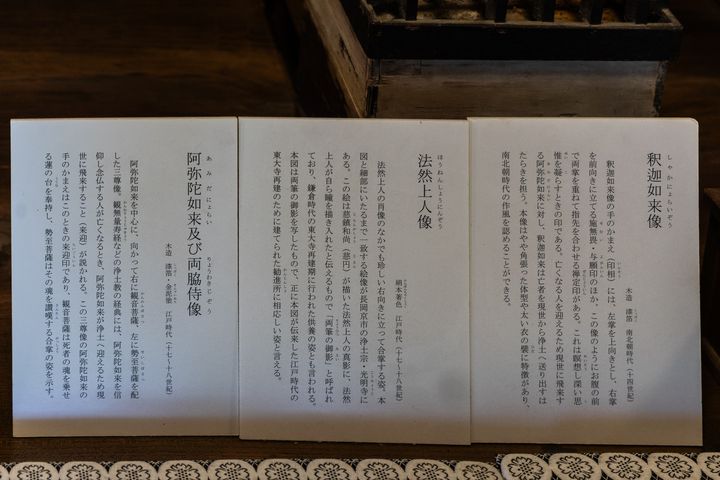 釈迦如来像
しゃかにょらいぞう
木造　漆箔　南北朝時代（十四世紀）
釈迦如来像の手のかまえ（印相）には、左掌を上向きとし、右掌
を前向きに立てる施無畏・与願印のほか、この像のようにお腹の前
で両掌を重ねて指先を合わせる禅定印がある。これは瞑想し深い思
惟を凝らすときの印である。亡くなる人を迎えるため現世に飛来す
る阿弥陀如来に対し、釈迦如来は亡者を現世から浄土へ送り出すは
たらきを担う。本像はやや角張った体型や太い衣の襞に特徴があり、
南北朝時代の作風を認めることができる。
法然上人像
ほうねんしょうにんぞう
絹本著色　江戸時代（十七～十八世紀）
法然上人の肖像のなかでも珍しい右向きに立って合掌する姿。本
図と細部にいたるまで一致する絵像が長岡京市の浄土宗・光明寺に
ある。この絵は慈鎮和尚（慈円）が描いた法然上人の真影に、法然
上人が自ら瞳を描き入れたと伝えるもので「両筆の御影」と呼ばれ
ており、鎌倉時代の東大寺再建期に行われた供養の姿とも言われる。
本図は両筆の御影を写したもので、正に本図が伝来した江戸時代の
東大寺再建のために建てられた勧進所に相応しい姿と言える。
阿弥陀如来及び両脇侍像
あみだにょらい　りょうきょうじぞう
木造　漆箔・金泥塗　江戸時代（十七～十八世紀）
阿弥陀如来を中心に、向かって右に観音菩薩、左に勢至菩薩を配
した三尊像。観無量寿経などの浄土教の経典には、阿弥陀如来を信
仰し念仏する人が亡くなるとき、阿弥陀如来が浄土へ迎えるため現
世に飛来すること（来迎）が説かれる。この三尊像の阿弥陀如来の
手のかまえはこのときの来迎印であり、観音菩薩は死者の魂を乗せ
る蓮の台を奉持し、勢至菩薩はその魂を讃嘆する合掌の姿を示す。